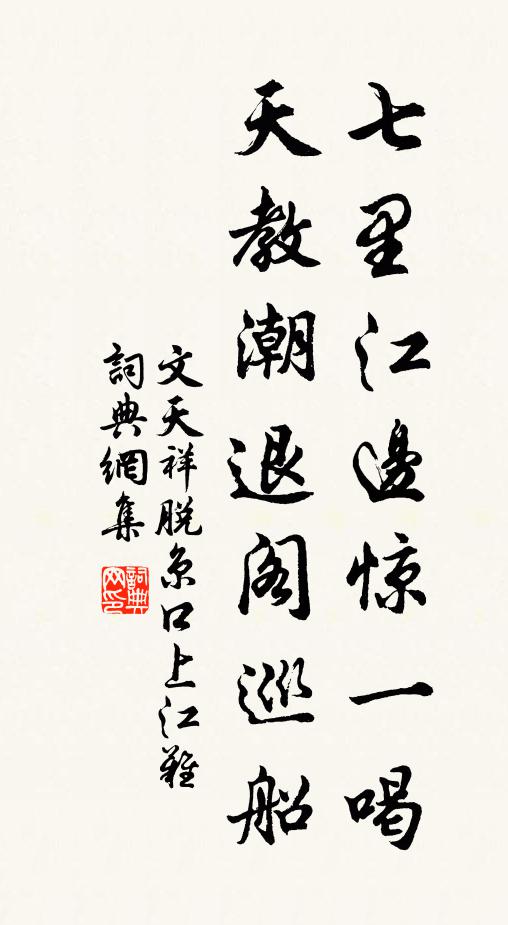 七里江邊惊一喝
天教潮退阁巡船
文天祥脱京口上江難
詞典網集
詞典网印